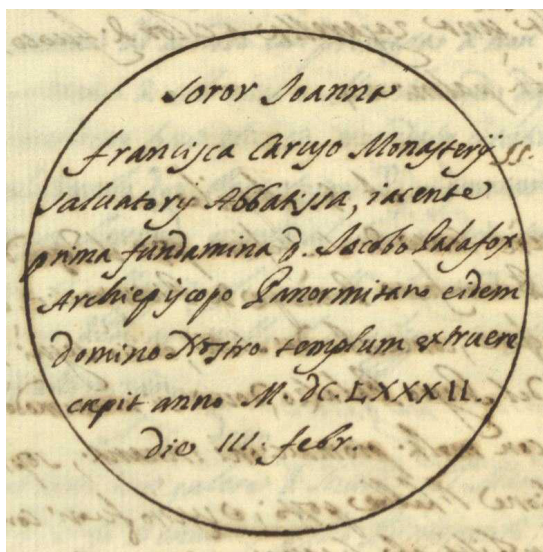 Soror Joanna
Francisca Caruso Monasterij SS.
Salvatoris Abbatissa, iacente
prima fundamina d. Jacobo Palafox
Archiepiscopo Panormitano eidem
domino Nostro templum extruere
cepit anno M. DC. LXXXII.
die III. febr.